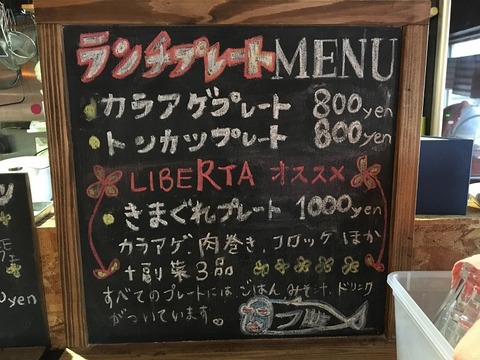 ランチプレートMENU
カラアゲプレート 800yen
トンカツプレート 800yen
LIBERTA オススメ
きまぐれプレート 1000yen
カラアゲ、肉巻き、コロッケ ほか
+副菜3品
すべてのプレートには、ごはん、みそ汁、ドリンク
がついています。
yen